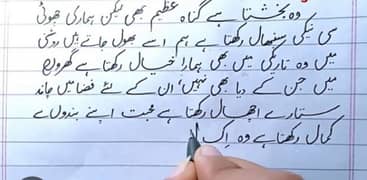 وہ بخشتا ہے گناہ عظیم بھی لیکن ہماری چھوٹی
سی نیکی سنبھال رکھتا ہے ہم اسے بھول جاتے ہیں روشنی
میں وہ تاریکی میں بھی ہمارا خیال رکھتا ہے گھروں
میں جن کے دیا بھی نہیں، ان کے لئے فضا میں چاند
ستارے اچھال رکھتا ہے محبت اپنے بندوں سے
کمال رکھتا ہے وہ اک